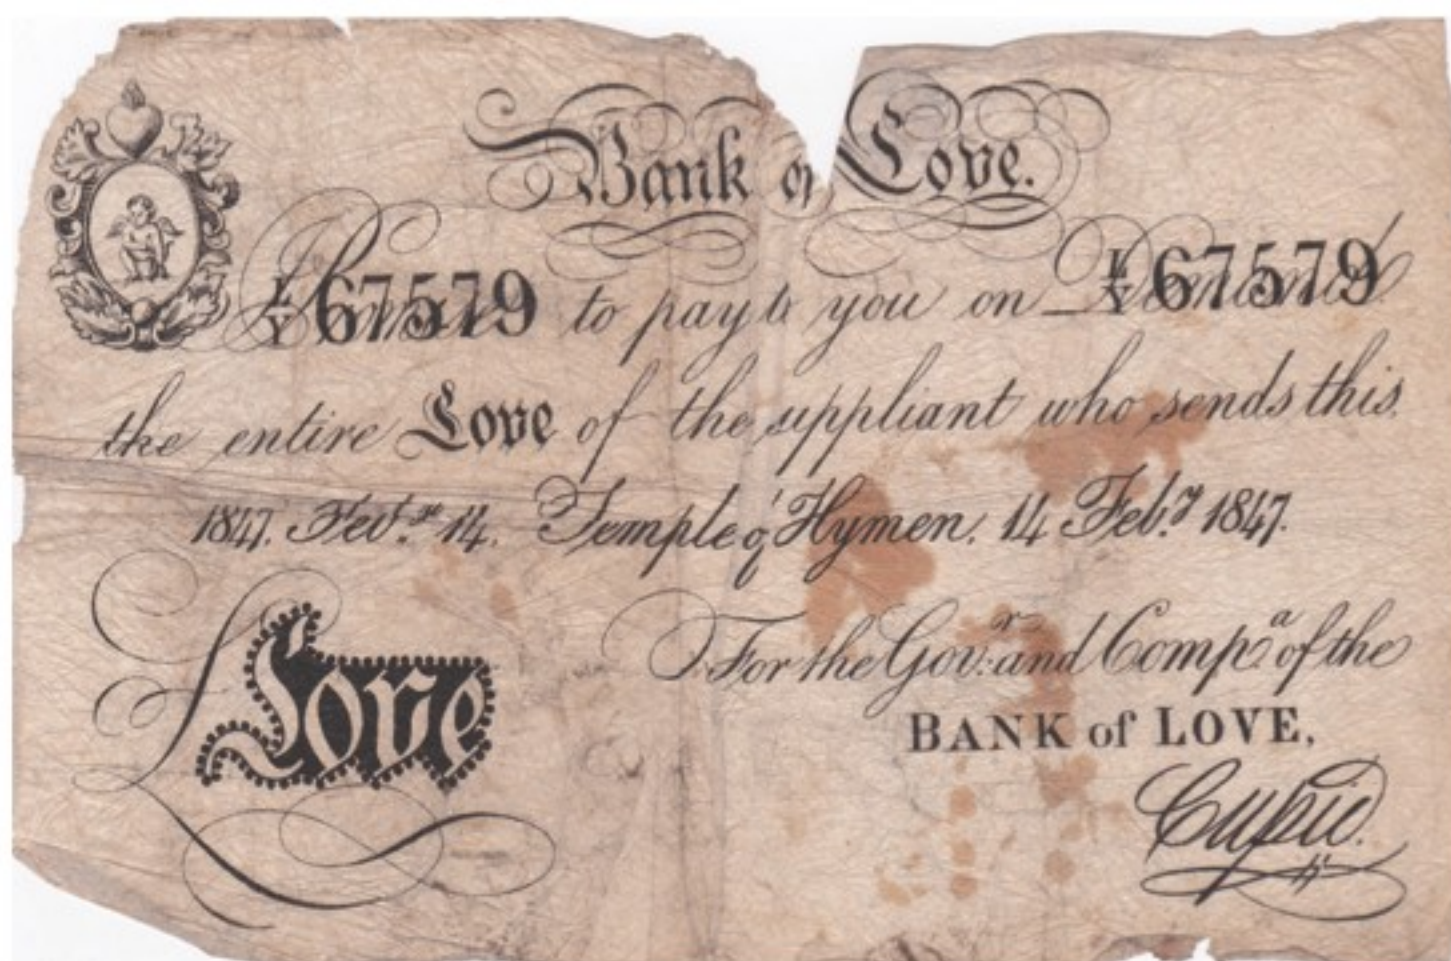 Bank of Love.
I Promise to pay to you on Demand
L/Y 67579 L/Y 67579
the entire Love of the suppliant who sends this.
1847. Feb.ry 14. Temple of Hymen. 14 Feb.ry 1847.
Love
For the Gov.r and Comp.a of the
BANK of LOVE,
Cupid.